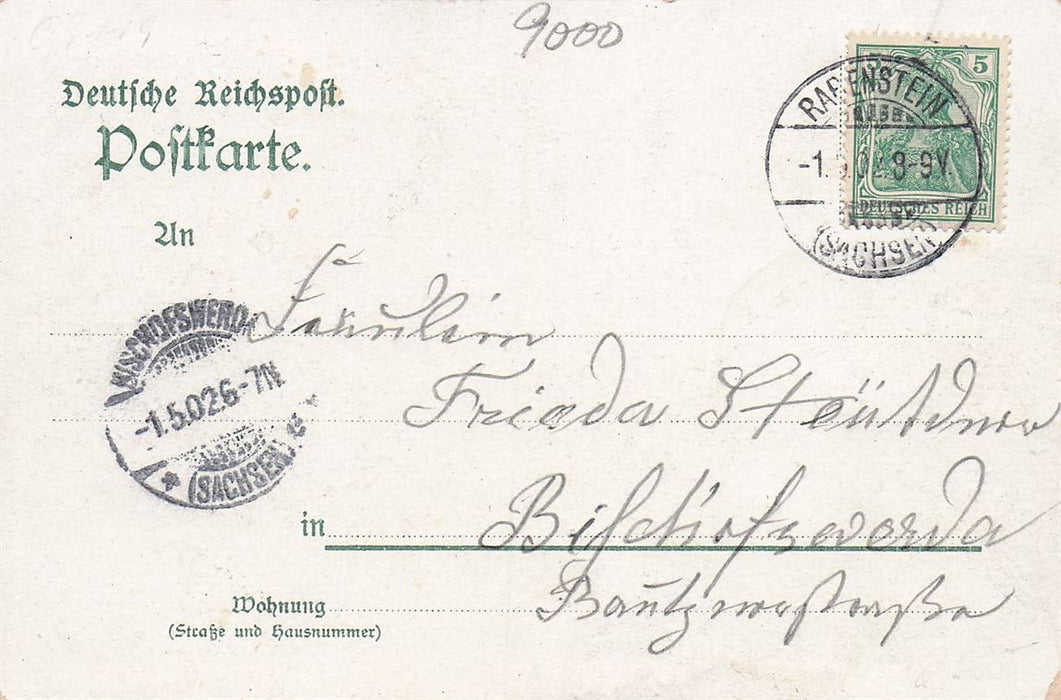 9000
Deutsche Reichspost.
Postkarte.
5
RABENSTEIN
-1.5.02.8-9V.
DEUTSCHES REICH
(SACHSEN)
An
Fräulein
BISCHOFSWERDA
-1.5.02.6-7N.
* (SACHSEN) c
Frieda
in Bischofswerda
Wohnung Bautznerstraße
(Straße und Hausnummer)